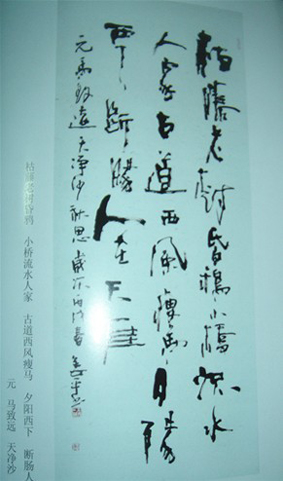 枯藤老樹昏鴉小橋流水
人家古道西風瘦馬夕陽
西下斷腸人在天涯
元馬致遠天净沙秋思
枯藤老树昏鸦 小桥流水人家 古道西风瘦马 夕阳西下 断肠人
元 马致远 天净沙